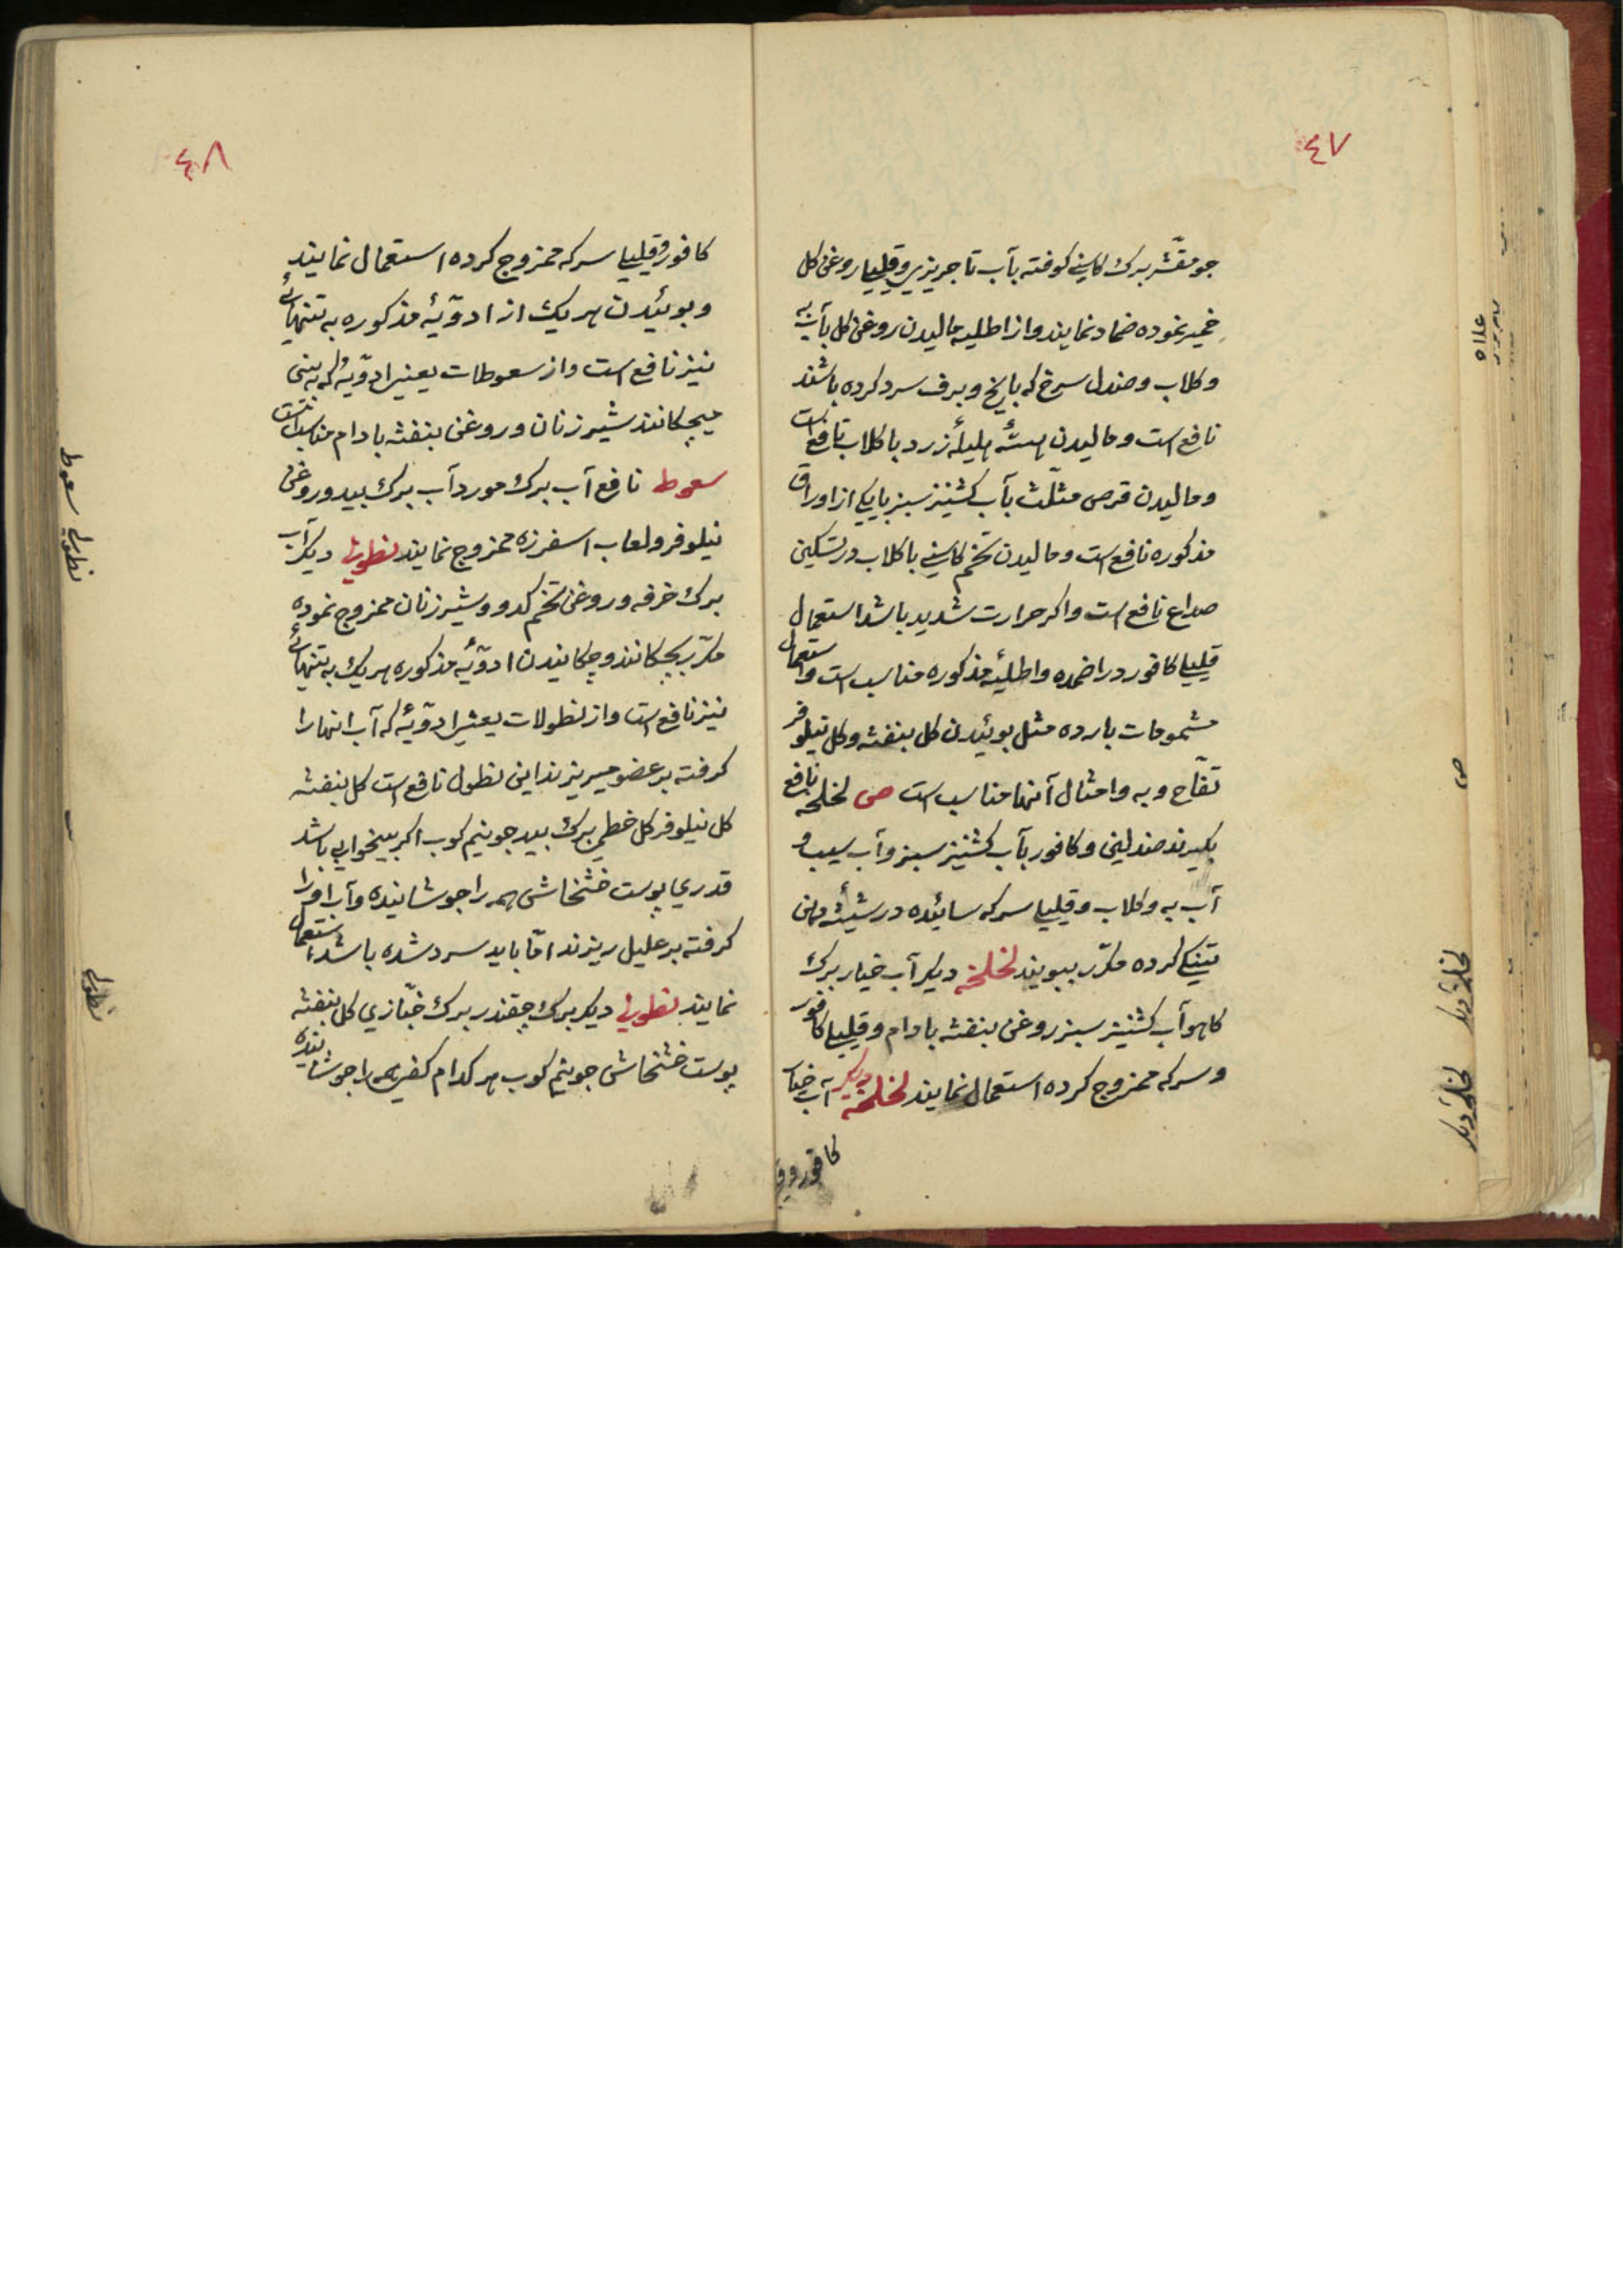 ٤٧
جو مقشّر برك كاسني كوفته بآب تاجريزي و قليليا روغن كل
خمير نموده ضماد نمايند و از اطليه ماليدن روغن كل بآب به
و كلاب و صندل سرخ كه بايخ و برف سرد كرده باشند
نافع است و ماليدن هستهٔ هليلهٔ زرد با كلاب نافع است
و ماليدن قرص مثلّث بآب كشنيز سبز يا يكي از اوراق
مذكوره نافع است و ماليدن تخم كاسني با كلاب در تسكين
صداع نافع است و اكر حرارت شديد باشد استعمال
قليليا كافور در اضمده و اطليهٔ مذكوره مناسب است و استعمال
مشمومات بارده مثل بوئيدن كل بنفشه و كل نيلوفر
تفّاح و به و امثال آنها مناسب است ص لخلخه نافع
بكيرند صندلين و كافور بآب كشنيز سبز و آب سيب و
آب به و كلاب و قليليا سركه سائيده در شيشهٔ دهن
تنكي كرده مكرّر ببويند لخلخه ديكر آب خيار برك
كاهو آب كشنيز سبز روغن بنفشه بادام و قليليا كافور
و سركه ممزوج كرده استعمال نمايند لخلخه ديكر آب خيار
كافور و ق
ص
لخلخهٔ ديكر
لخلخهٔ ديكر
٤٨
كافور و قليليا سركه ممزوج كرده استعمال نمايند
و بوئيدن هر يك از ادوّيهٔ مذكوره به تنهائي
نيز نافع است و از سعوطات يعني ادوّيهٔ كه به بيني
ميچكانند شير زنان و روغن بنفشه بادام مناسب است
سعوط نافع آب برك مورد آب برك بيد و روغن
نيلوفر و لعاب اسفرزه ممزوج نمايند نطولي ديكر آب
برك خرفه و روغن تخم كدو و شير زنان ممزوج نموده
مكرّر بچكانند و چكانيدن ادوّيهٔ مذكوره هر يك به تنهائي
نيز نافع است و از نطولات يعني ادوّيهٔ كه آب انها را
كرفته بر عضو ميريزند اين نطول نافع است كل بنفشه
كل نيلوفر كل خطمي برك بيد جو نيم كوب اكر بيخوابي باشد
قدري پوست خشخاش همه را جوشانيده و آب او را
كرفته بر عليل ريزند امّا بايد سرد شده باشد استعمال
نمايند نطولي ديكر برك چقندر برك خبّازي كل بنفشه
پوست خشخاش جو نيم كوب هر كدام كفي همه را جوشانيده
سعوط
نطولي
نطولي